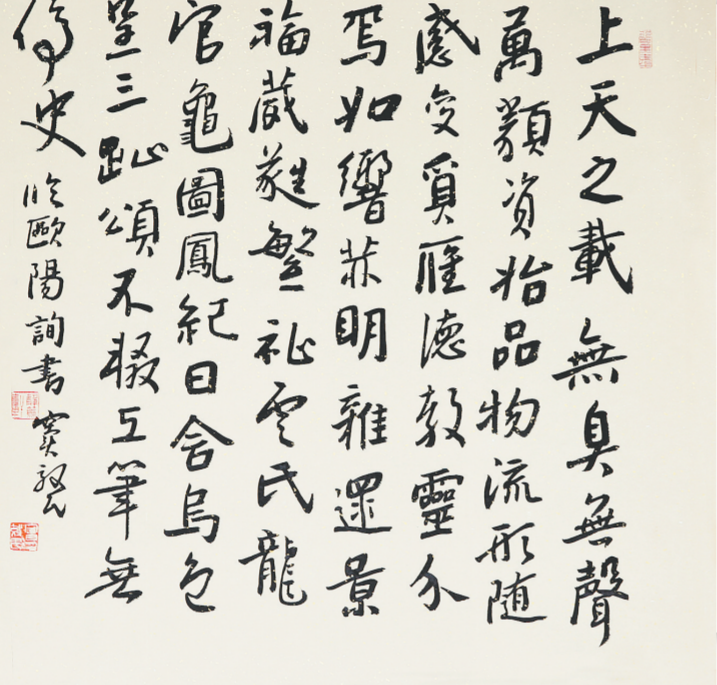 上天之載無臭無聲
萬類資始品物流形随
感變質應德效靈介
焉如響赫明雜遝景
福葳蕤繁祉雲氏龍
官龜圖鳳紀日含烏色
呈三趾頌不輟工筆無
停史
臨歐陽詢書 竇